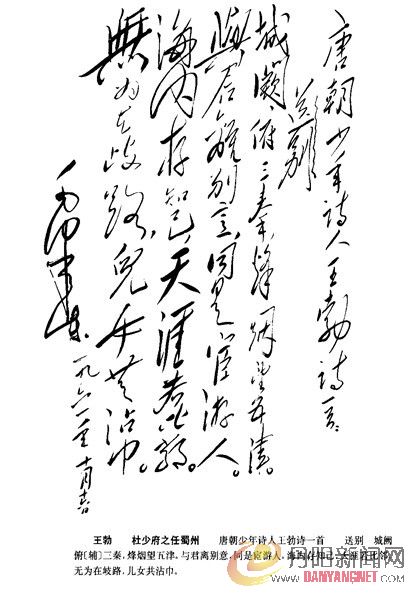 唐朝少年詩人王勃詩一首
送别
城闕俯三秦。烽烟望五津。
與君離别意。同是宦游人。
海内存知己。天涯若比鄰。
無为在歧路。兒女共沾巾。
毛泽东
一九六一年
王勃 杜少府之任蜀州 唐朝少年诗人王勃诗一首 送别 城阙
俯[辅]三秦，烽烟望五津。与君离别意，同是宦游人。海内存知己，天涯若比邻。
无为在岐路，儿女共沾巾。
丹阳新闻网